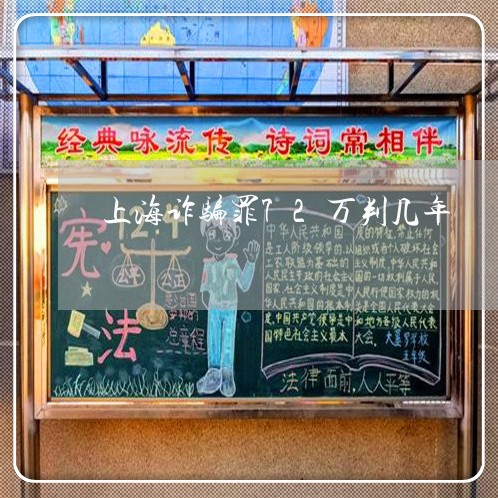 经典咏流传 诗词常相伴
上海诈骗罪12万判几年
宪法
12·4
公平 公正
总章程
中华人民共和国
是工人阶级领导的,以
工农联盟为基础的
人民民主专政的社会主义
国家,社会主义制度是中
华人民共和国的根本制
度,中国共产党领导是中
国特色社会主义最本
质的特征,禁止任何
组织或者个人破坏社会
主义制度,中华人民共和
国的一切权利属于人民,
人民行使国家权力的机
关是全国人民代表大会
和地方各级人民代表
大会。
五年级
法律面前,人人平等